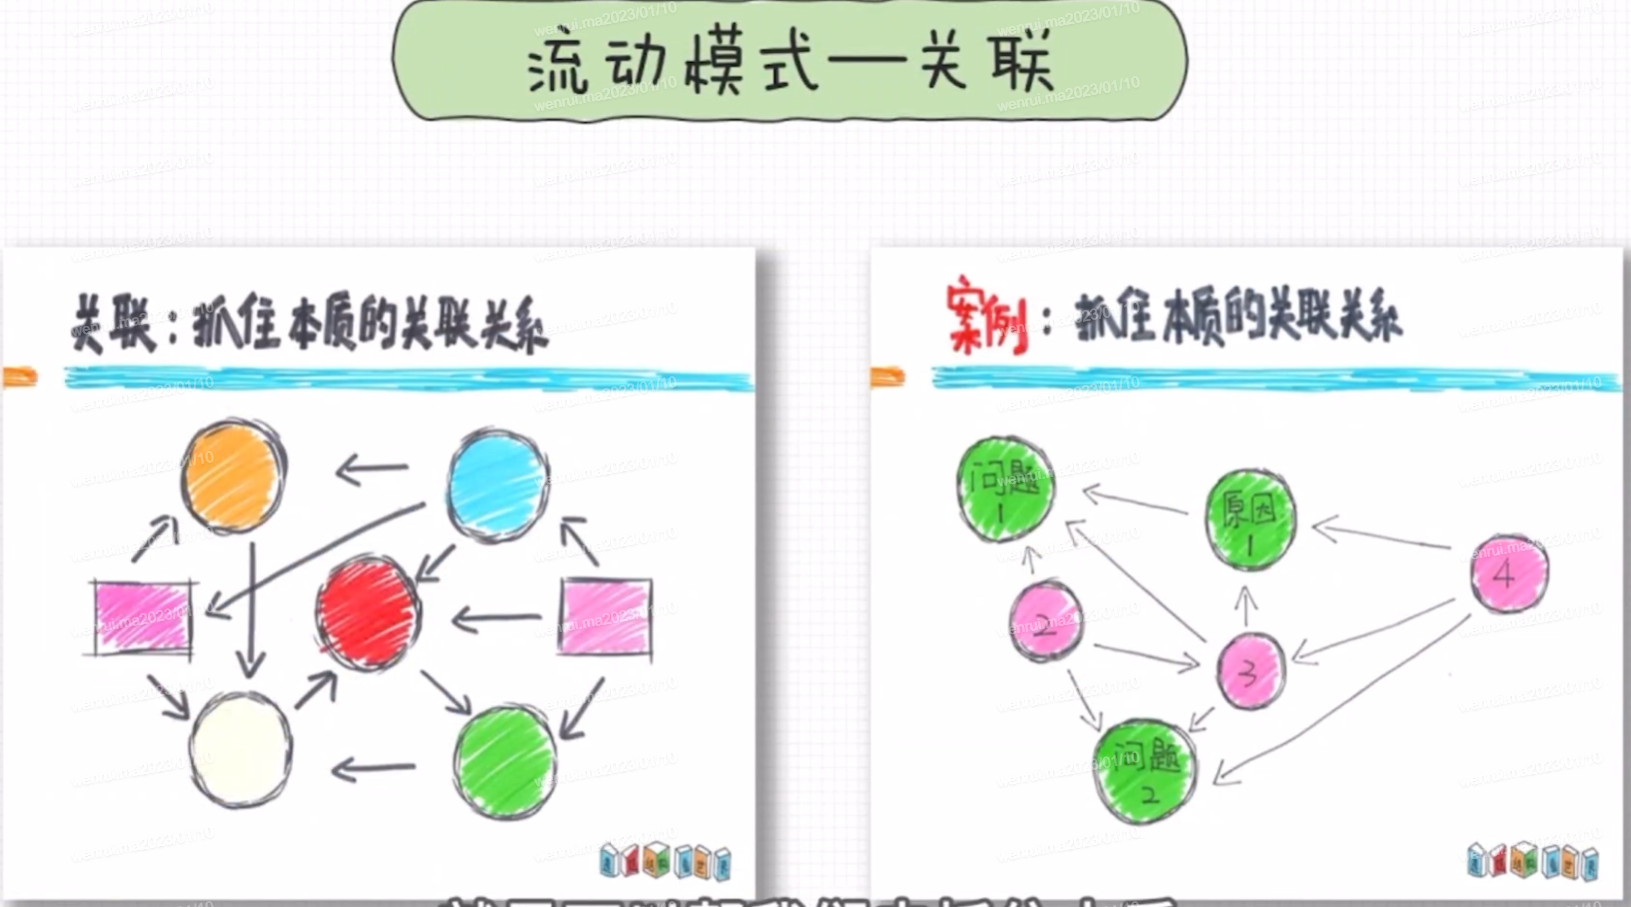 流动模式—关联
关联：抓住本质的关联关系
案例：抓住本质的关联关系
问题
1
原因
1
4
2
3
问题
2
wenrui.ma2023/01/10